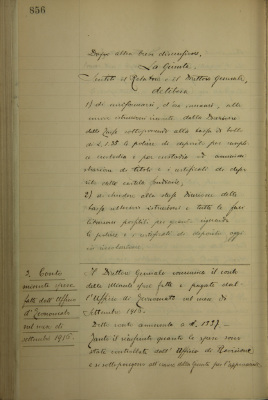 856
Dopo altra breve discussione,
La Giunta
Sentito il Relatore e il Direttore Generale,
delibera
1) di uniformarsi, d'ora innanzi, alle
nuove istruzioni della Direzione
delle Tasse sottoponendo alla tassa di bollo
di L. 1.25 le polizze di deposito per
a custodia e per custodia ed
di titoli e i certificati di
2) di chiedere alla stessa Direzione delle
tasse istruzioni e tutte le
per quanto riguarda
le polizze e certificati di deposito oggi
in circolazione.
2. Conto
minute spese
fatte dall'Ufficio
d'Economato
nel mese di
settembre 1916.
Il Direttore Generale comunica il conto
delle minute spese fatte e pagate dal-
l'Ufficio di Economato nel mese di
settembre 1916.
Detto conto ammonta a L. 1327.-
tanto il quanto le spese sono
state controllate dall'Ufficio di Revisione
e si sottopongono all'esame della Giunta per l'approvazione.